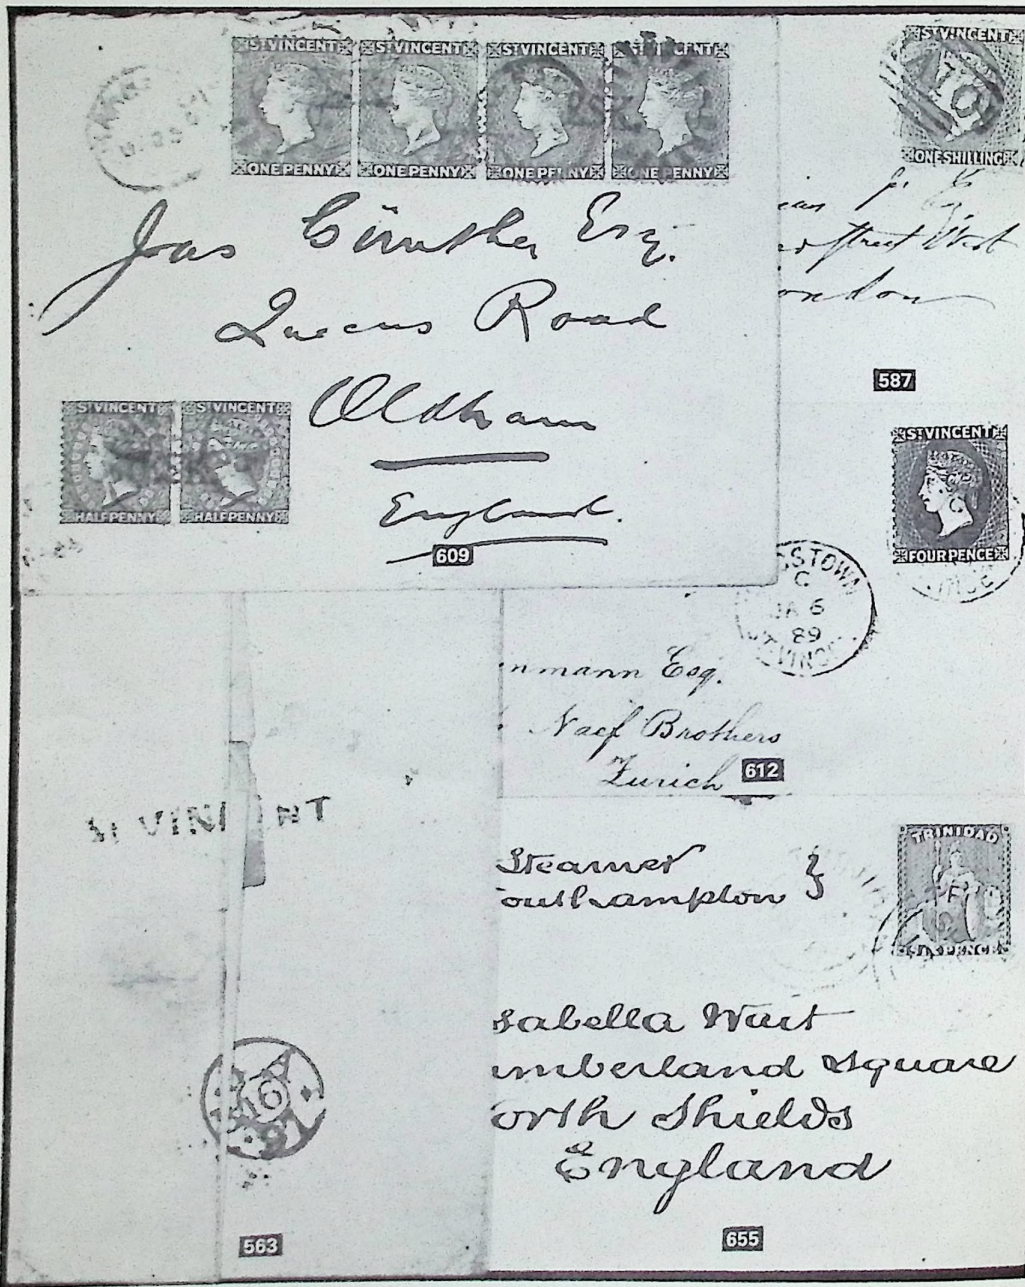 ST VINCENT ST VINCENT ST VINCENT
ONE PENNY ONE PENNY ONE PENNY ONE PENNY
Jas Esq.
Queens Road
Oldham
England.
ST VINCENT ST VINCENT
HALFPENNY HALFPENNY
609
ST VINCENT
A10
ONE SHILLING
Street West
ondon
587
ST VINCENT
FOUR PENCE
GSTOWN
C
JA 6
89
T.VINCE
nmann Esq.
Naef Brothers
Zurich
612
ST VIN NT
16
563
TRINIDAD
SIXPENCE
Steamer
outhampton }
sabella Wait
umberland Square
orth Shields
England
655